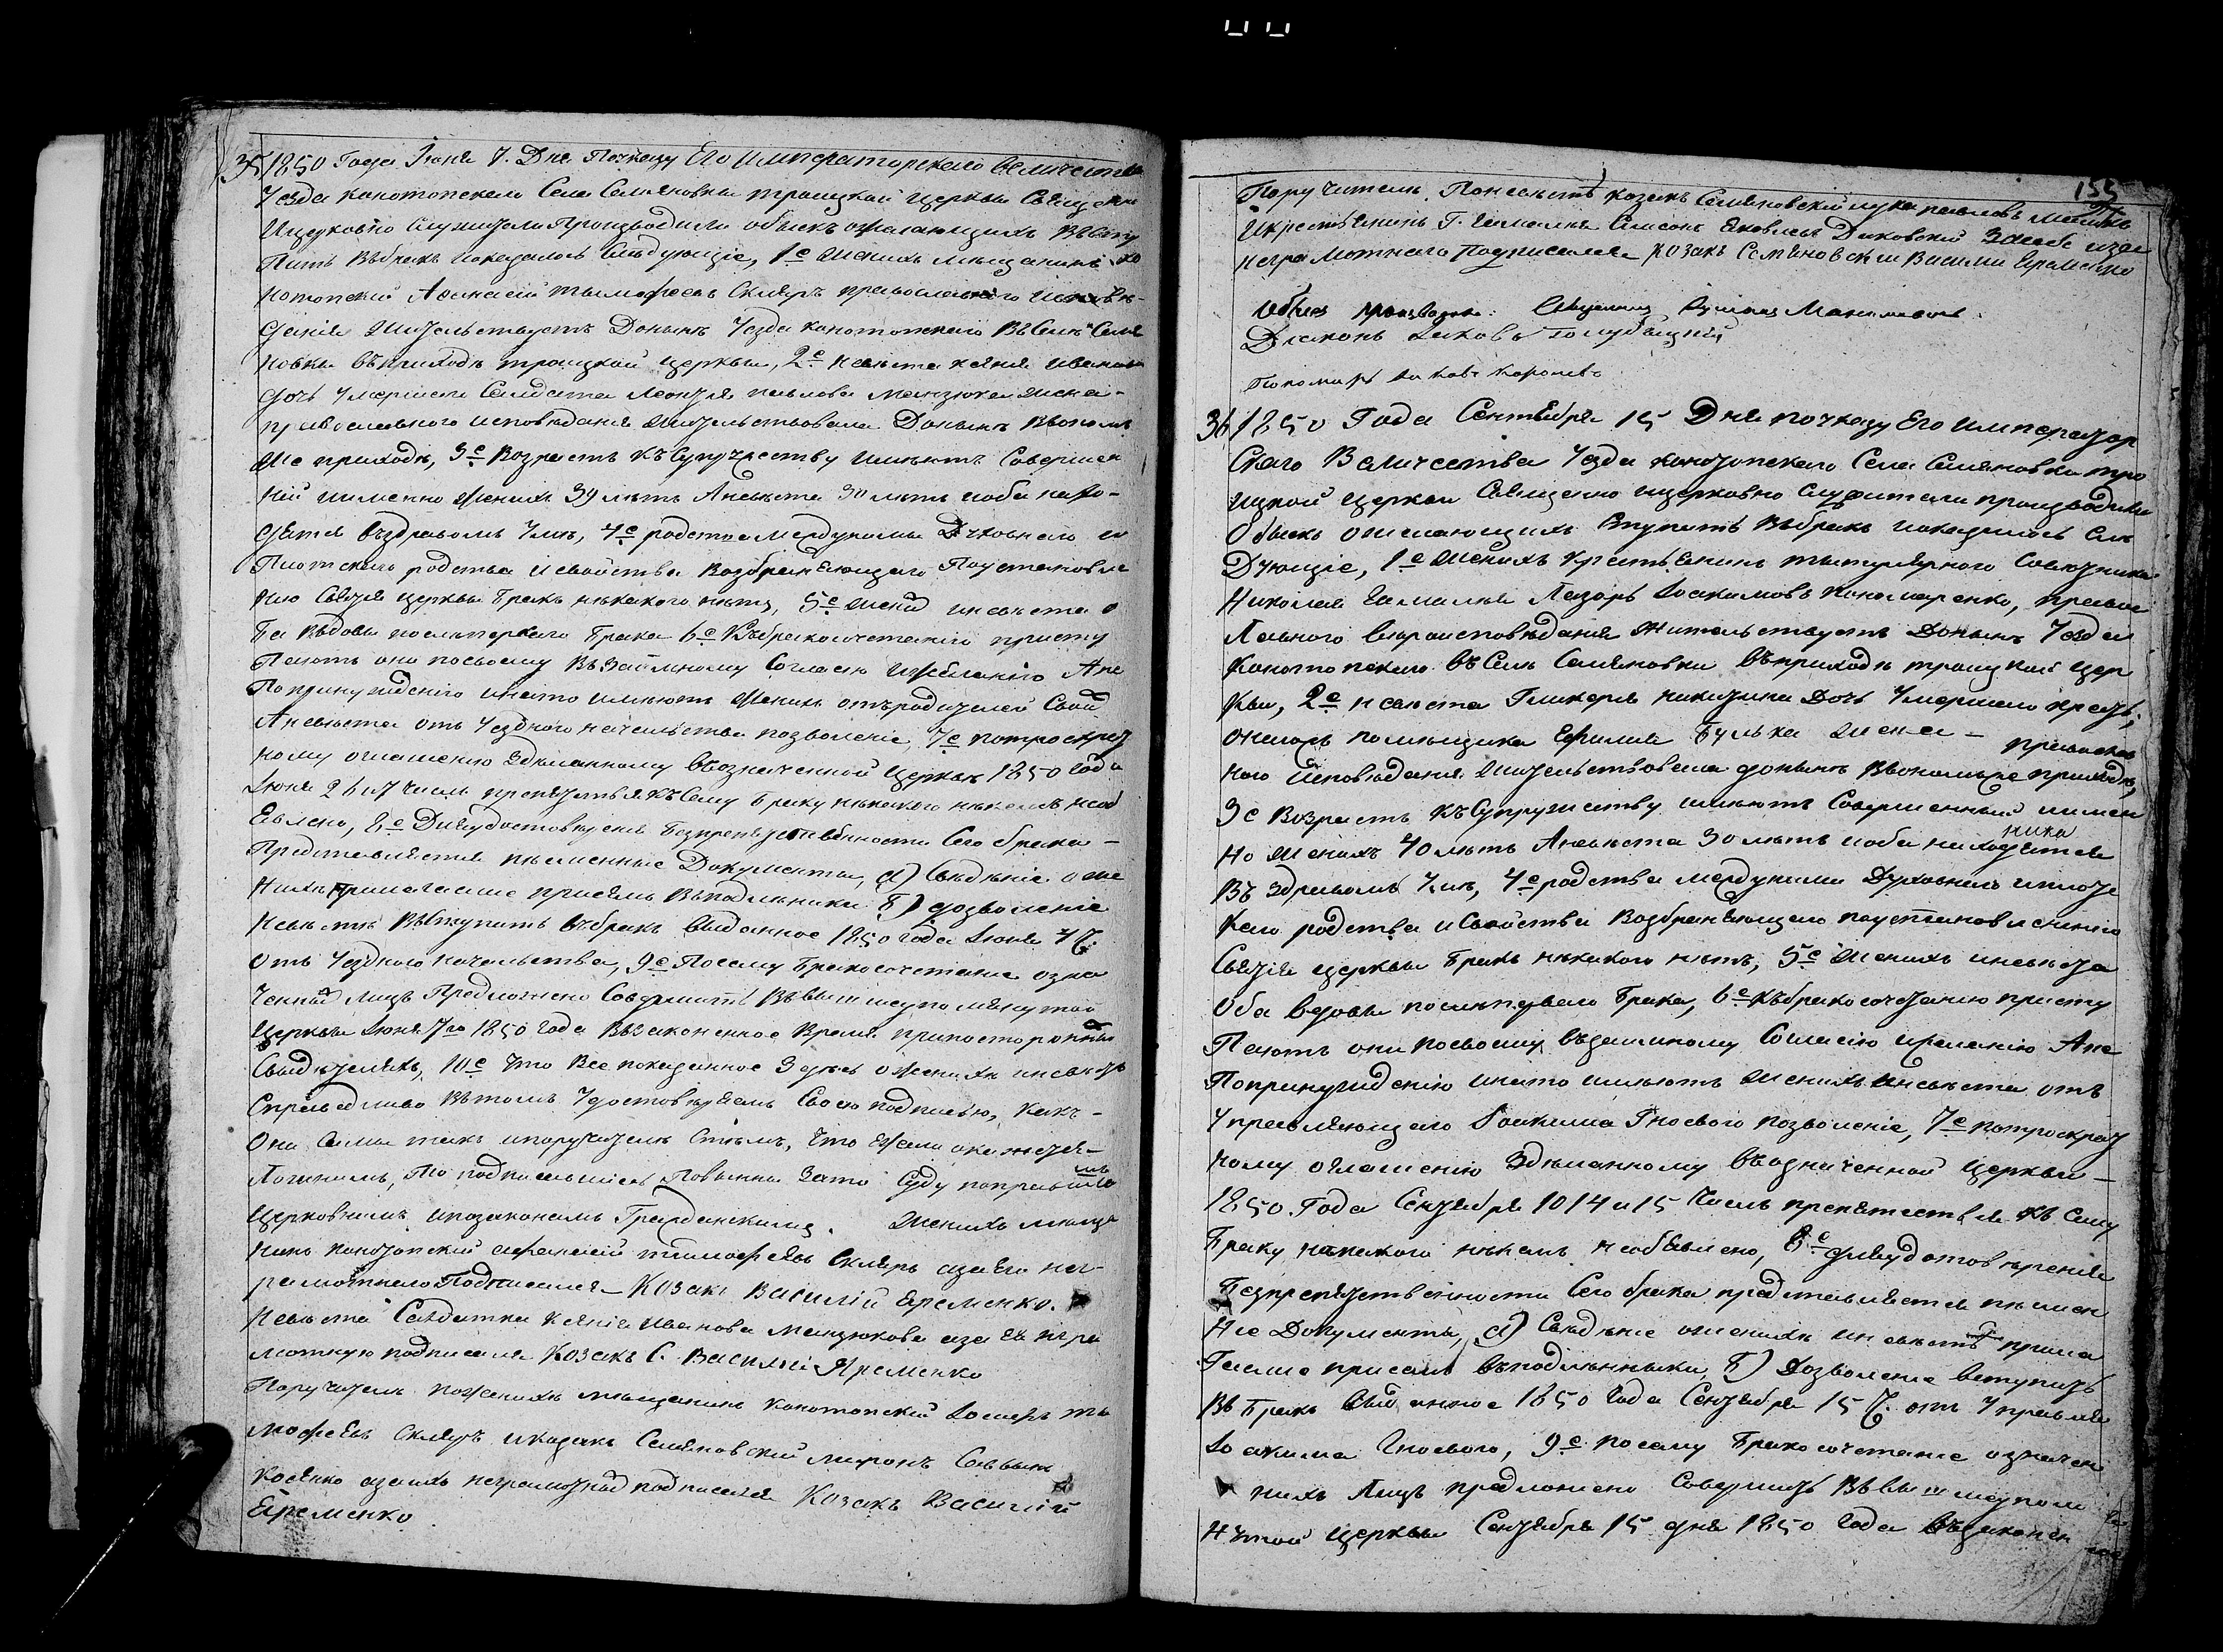 35 1850 Года Іюня 7. Дня Поуказу Его Императорскаго Величества
Уезда конотопскаго Села Семяновки троицкой церкви Священно
Ицерковно служители Производили обыскъ ожелающихъ Вьсту
Пить Вьбракъ ипоказалось Слѣдующіе, 1е Женихъ мещанинъ ко
нотопский Афанасий тымофеевъ Скляръ православнаго исповѣ-
данія Жительствуетъ Донынѣ Уезда конотопскаго Въ Селѣ Семя
новки въприходѣ троицкой церквы, 2е невѣста ксенія иванова
дочь умершаго Солдата павлова манзюка жена -
православного исповѣданія Жительствовала Донынѣ Вьономъ
Же приходѣ, 3е Возрастъ къ Супружеству имѣютъ Совершен
ній именно Женихъ 39 лѣтъ Аневѣста 30 лѣтъ иоба нахо-
дятся въздравомъ Умѣ, 4е родства междуними Духовнаго и
Плотскаго родства исвойства Возбраняющаго Поустановле
нию Святія церквы Бракъ нѣкакого нѣтъ, 5е Жених иневѣста о
Ба Вьдовы послѣперваго Брака 6е Къбракосочетанію присту
Паютъ они посвоему Възаимному Согласію ижеланію Ане
Попринуждѣнію инато имѣютъ Женихъ отъродителей Своих
Аневѣста отъ Уездного началства позволеніе, 7е потроекрат
ному оглашенію Здѣланному въозначенной церквѣ 1850 года
Іюня 2 6 и 7 числъ препятствія къСему Браку нѣкакого нѣкемъ необ
Евлено, 8е Дляудостовѣренія Безпрепятственности Сего брака -
Представляются писменные Документы, а) Свѣдѣніе оже
нихѣ прилагаемое присемъ Въподлѣнники Б) дозволеніе
Невѣсте Въступить въбракъ выданное 1850 года Іюня 4 Ч.
Отъ Уездного началства, 9е Посему Бракосочетание озна
Ченных лицъ Предложено Совершить Въвышшеупомянутой
Церквы Іюня 7го 1850 года Възаконенное Время припосторонных
Свидѣтеляхъ, 10е Что Все показанное Здѣсь оженихѣ иневѣсте
Справедливо Вътомъ Удостовѣряемъ Своею подписью, Какъ -
Они Сами такъ ипоручители Стѣмъ, Что Ежели окажется -
Ложнимъ, То подписавшиеся Повинны Зато Суду поправиламъ
Церковнимъ ипозаконамъ Гражданскимъ. Женихъ меща
нинъ конотопский афанасий тимофеевъ Скляръ азаего нег-
рамотнаго Подписался Козакъ Василій Еременко.
Невѣста Салдатка ксенія Иванова Манзюкова аза ея негра
мотную подписался Козакъ С. Василій Яременко
Поручители поженихѣ мещанинъ Конотопский ты
мофеевъ Скляръ икозакъ Семяновский миронъ Саввинъ
Косенко азаихъ неграмотных подписался Козакъ Василій
Еременко

155
Поручители Поневѣстѣ козакъ Семяновский лука павловъ
Икрестьянинъ Г. Самсонъ Яковлевъ Диковский Засебе иза
неграмотнаго Подписался Козакъ Семяновский Василий Еременко
Обыскъ производили: Священникъ Максимовичъ.
Діаконъ Іаковъ Голубицкій
Пономарь Іаковъ Королевъ
36 1850 Года Сентября 15 Дня поуказу Его Император
Скаго Величества Уезда конотопскаго Села Семяновки тро
ицкой церкви Священно ицерковно Служители производили
Обыскъ ожелающихъ Вступить Въбракъ ипоказалось Слѣ
Дующіе, 1е Женихъ крестьянинъ тытулярного Совѣтника
Николая Лазарь Іоакимовъ Пономаренко, право
Славного вѣроисповѣданія Жительствуетъ Донынѣ Уезда
Конотопскаго въ Селѣ Семяновки въприходѣ троицкой цер
квы, 2е невѣста Гликерія никитина Дочь Умершаго крестья
онинаго помѣщика Ефимия Булька жена - православ
ного Исповѣданія Жительствовала донынѣ Въономъже приходѣ,
3е Возрастъ къСупружеству имѣютъ Совершенный имен
но Женихъ 40 лѣтъ Аневѣста 30 лѣтъ иоба находятся
Въ здравомъ Умѣ, 4е родства междуними Духовнаго иплот
скаго родства иСвойства Возбраняющаго поустановленнію
Святія церквы Бракъ нѣкакого нѣтъ, 5е Женихъ иневѣста
Оба вдовы послѣпервого Брака, 6е Къбракосочетанію присту
Паютъ они посвоему възаимному Согласію ижеланію Ане
Попринуждѣнію инато имѣютъ Женихъ иневѣста отъ
Управляющаго Іоакима Гноевого позволеніе, 7е потроекрат
ному оглашенію Здѣланному въозначенной церквы -
1850. Года Сентября 10 14 и 15 Числъ препятствія къ Сему
Браку нѣкакого нѣкемъ необъявлено, 8е дляудостовѣренія
Безпрепятственности Сего брака представляется писмен
ние Документы, а) Свѣдѣніе оженихѣ иневѣстѣ прила
Гаемое присемъ въподлѣнныки, Б) дозволеніе вступить
Въ Бракъ Выданное 1850 года Сентября 15 Ч. отъ Управля
Іоакима Гноевого, 9е посему Бракосочетание означен
нихъ Лицъ предложено Совершить Въвышшеупомя
Нутой церквы Сентября 15 дня 1850 года възаконен